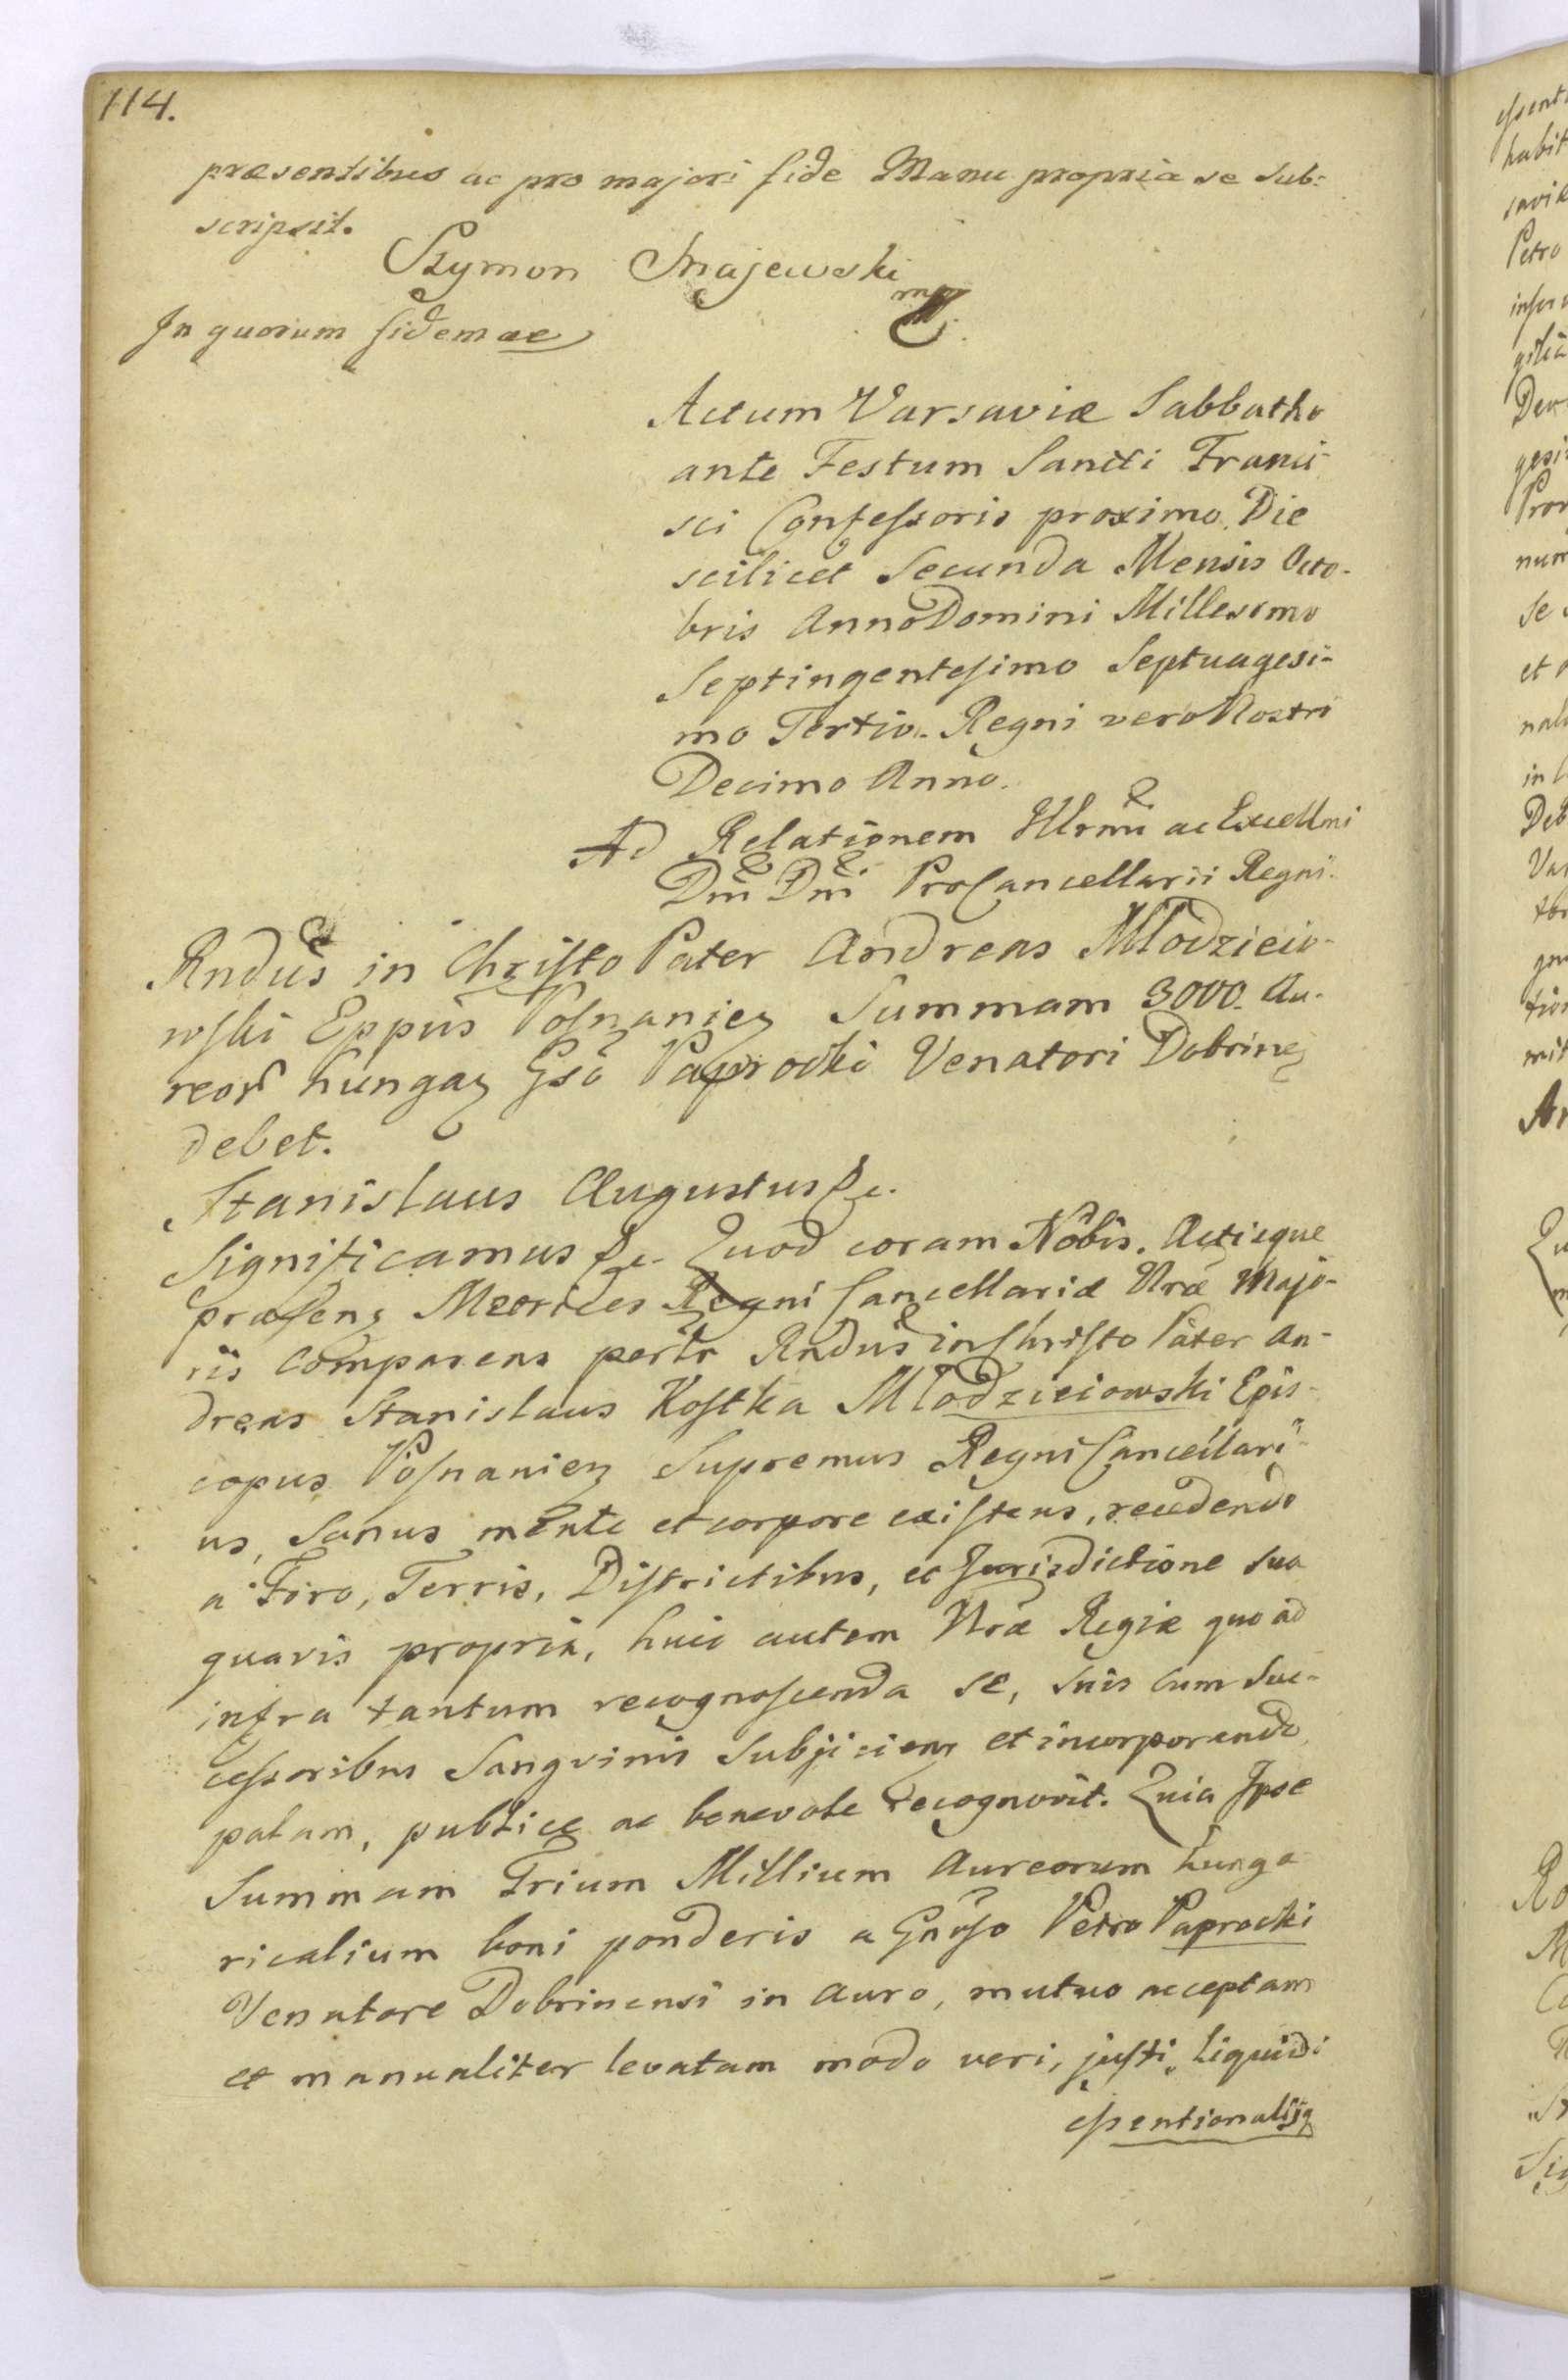 114.
præsentibus ac pro majori fide Manu propria se Sub-
scripsit.
Szymon Majewski
mp
In quorum fidem ac
Actum Varsaviæ Sabbatho
ante Festum Sancti Franci-
sci Confessoris proximo. Die
scilicet Secunda Mensis Octo-
bris Anno Domini Millesimo
Septingentesimo Septuagesi-
mo Tertio. Regni vero Nostri
Decimo Anno.
Ad Relationem Illrmi ac Excellmi
Dni Dni ProCancellarii Regni.
Rndus in Christo Pater Andreas Młodzieio-
wski Eppus Posnanien Summam 3000. Au-
reor hungar Gso Paprocki Venatori Dobrinen
debet.
Stanislaus Augustus &c.
Significamus &c. Quod coram Nobis, Actisque
præsen Metrices Regni Cancellariæ Nræ Majo-
ris Comparens perslr Rndus in Christo Pater An-
dreas Stanislaus Kostka Młodzieiowski Epis-
copus Posnanien Supremus Regni Cancellari-
us, Sanus mente et corpore existens, recedendo
a Foro, Terris, Districtibus, et Jurisdictione sua
quavis propria, huic autem Nræ Regiæ quo ad
infra tantum recognoscenda se, suis cum Suc-
cessoribus Sangvinis Subjiciens et incorporando
palam, publice ac benevole recognovit. Quia Ipse
Summam Trium Millium Aureorum hunga-
ricalium boni ponderis a Gnoso Petro Paprocki
Venatore Dobrinensi in Auro, mutuo acceptam
et manualiter levatam modo veri, justi, liquidi
essentionalisq